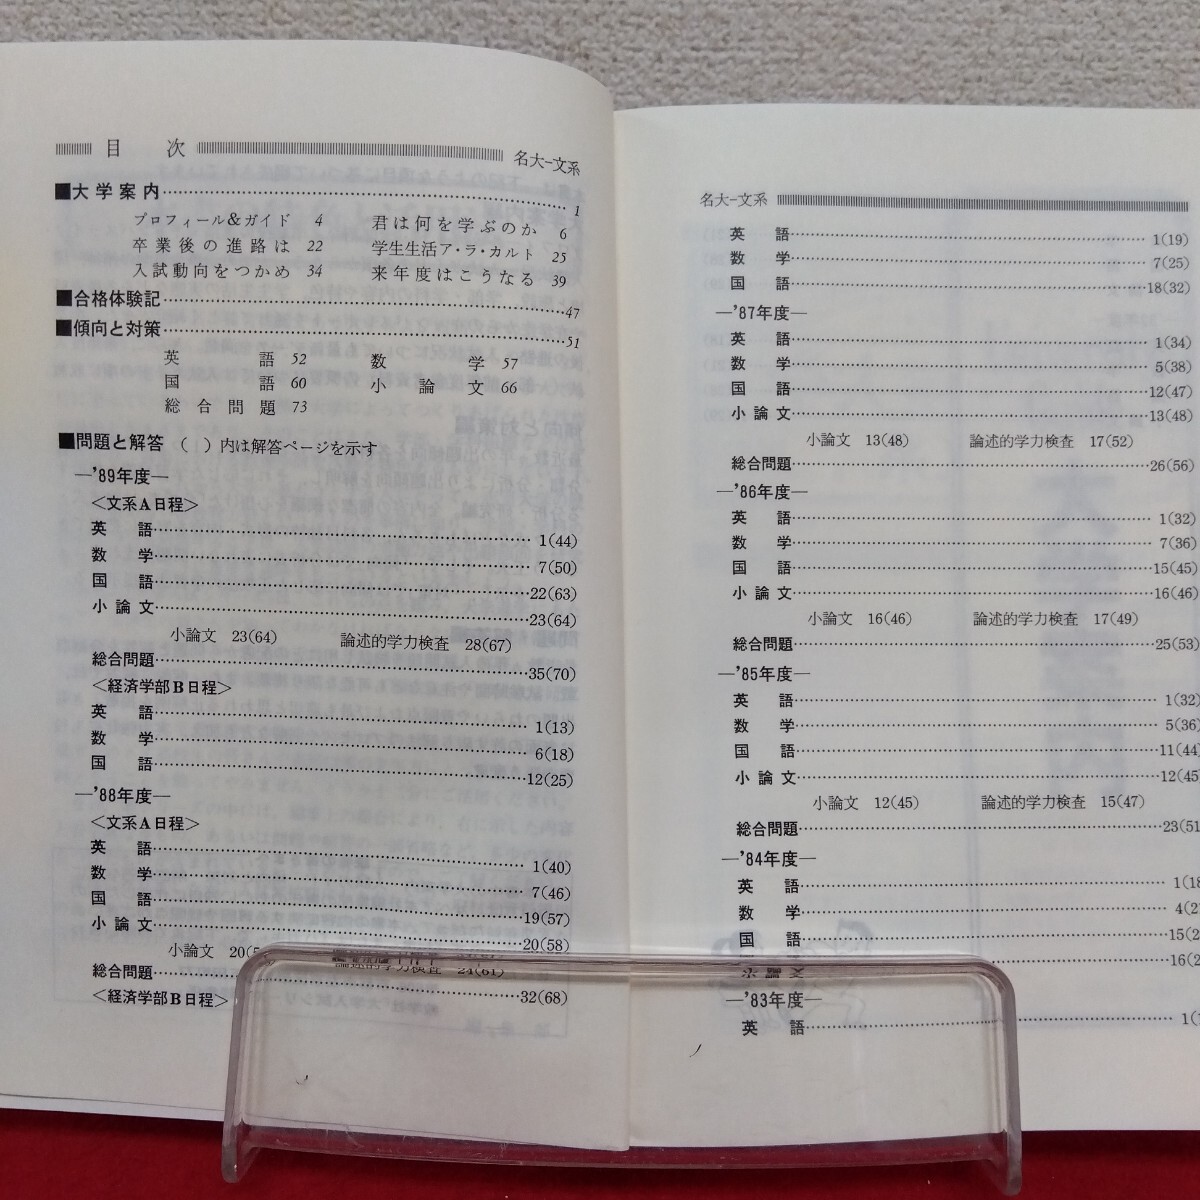 目　次
名大-文系
■大学案内 1
プロフィール&ガイド 4　君は何を学ぶのか 6
卒業後の進路は 22　学生生活ア・ラ・カルト 25
入試動向をつかめ 34　来年度はこうなる 39
■合格体験記 47
■傾向と対策 51
英　語 52　数　学 57
国　語 60　小論文 66
総合問題 73
■問題と解答（ ）内は解答ページを示す
―'89年度―
＜文系A日程＞
英　語 1(44)
数　学 7(50)
国　語 22(63)
小論文 23(64)
小論文 23(64)　論述的学力検査 28(67)
総合問題 35(70)
＜経済学部B日程＞
英　語 1(13)
数　学 6(18)
国　語 12(25)
―'88年度―
＜文系A日程＞
英　語 1(40)
数　学 7(46)
国　語 19(57)
小論文 20(58)
小論文 20(5　論述的学力検査 24(61)
総合問題 32(68)
＜経済学部B日程＞
名大-文系
英　語 1(19)
数　学 7(25)
国　語 18(32)
―'87年度―
英　語 1(34)
数　学 5(38)
国　語 12(47)
小論文 13(48)
小論文 13(48)　論述的学力検査 17(52)
総合問題 26(56)
―'86年度―
英　語 1(32)
数　学 7(36)
国　語 15(45)
小論文 16(46)
小論文 16(46)　論述的学力検査 17(49)
総合問題 25(53)
―'85年度―
英　語 1(32)
数　学 5(36)
国　語 11(44)
小論文 12(45)
小論文 12(45)　論述的学力検査 15(47)
総合問題 23(51
―'84年度―
英　語 1(18
数　学 4(2
国　語 15(2
小論文 16(2
―'83年度―
英　語 1(1